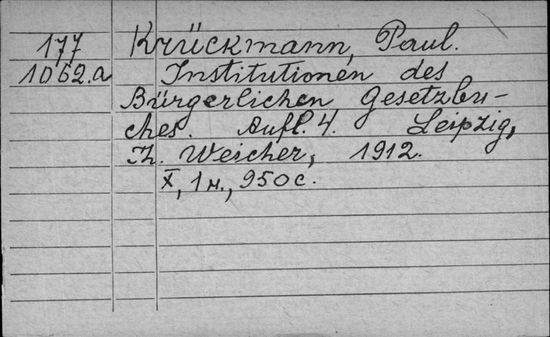 177
1062.a
Krückmann, Paul.
Institutionen des
Bürgerlichen Gesetzbu-
ches. Aufl. 4. Leipzig,
Th. Weicher, 1912.
X, 1 н., 950 с.